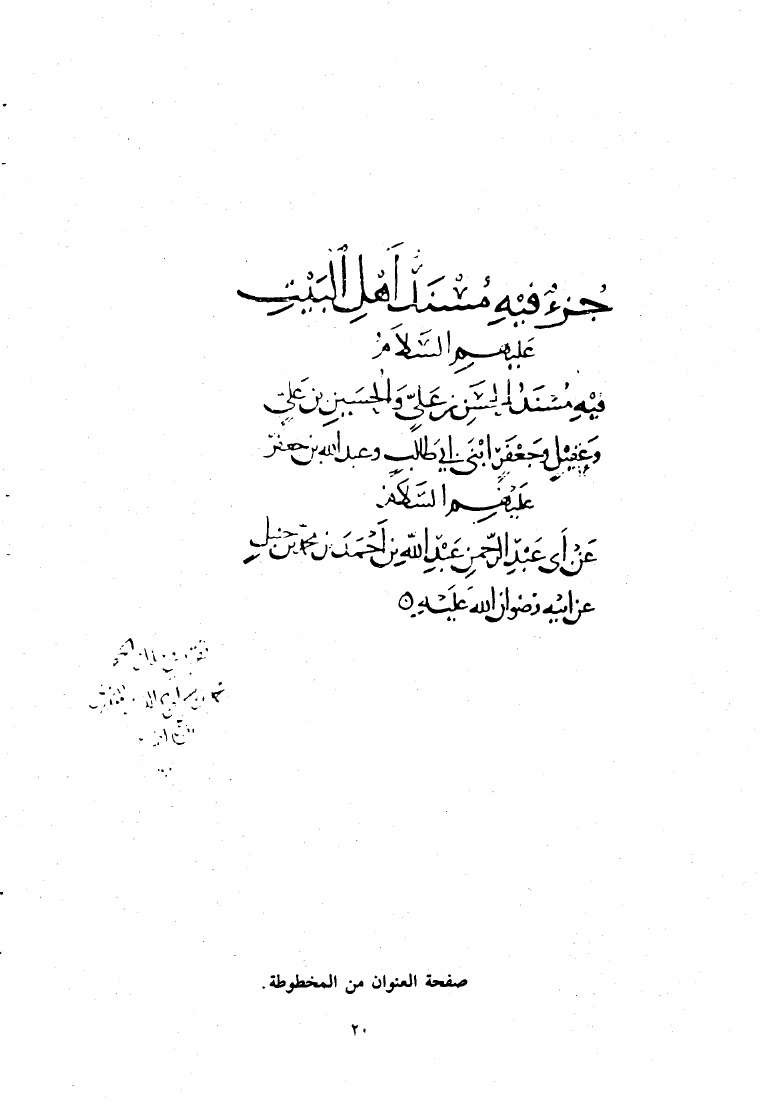 جُزءٌ فِيهِ مُسْنَدُ أَهْلِ الْبَيْتِ
عَلَيْهِمُ السَّلَامُ
فِيْهِ مُسْنَدُ الْحَسَنِ بْنِ عَلِيٍّ وَالْحُسَيْنِ بْنِ عَلِيٍّ
وَعَقِيْلٍ وَجَعْفَرَ ابْنَيْ ابي طَالِبٍ وعبد الله بن جعفر
عَلَيْهِمُ السَّلَامُ
عَنْ أبي عَبْدِ الرَّحْمنِ عَبْدِ اللهِ بنِ أَحْمَدَ بنِ محمد بن حنبل
عن ابيه رضوان الله عَلَيْهِ
صفحة العنوان من المخطوطة.
٢٠